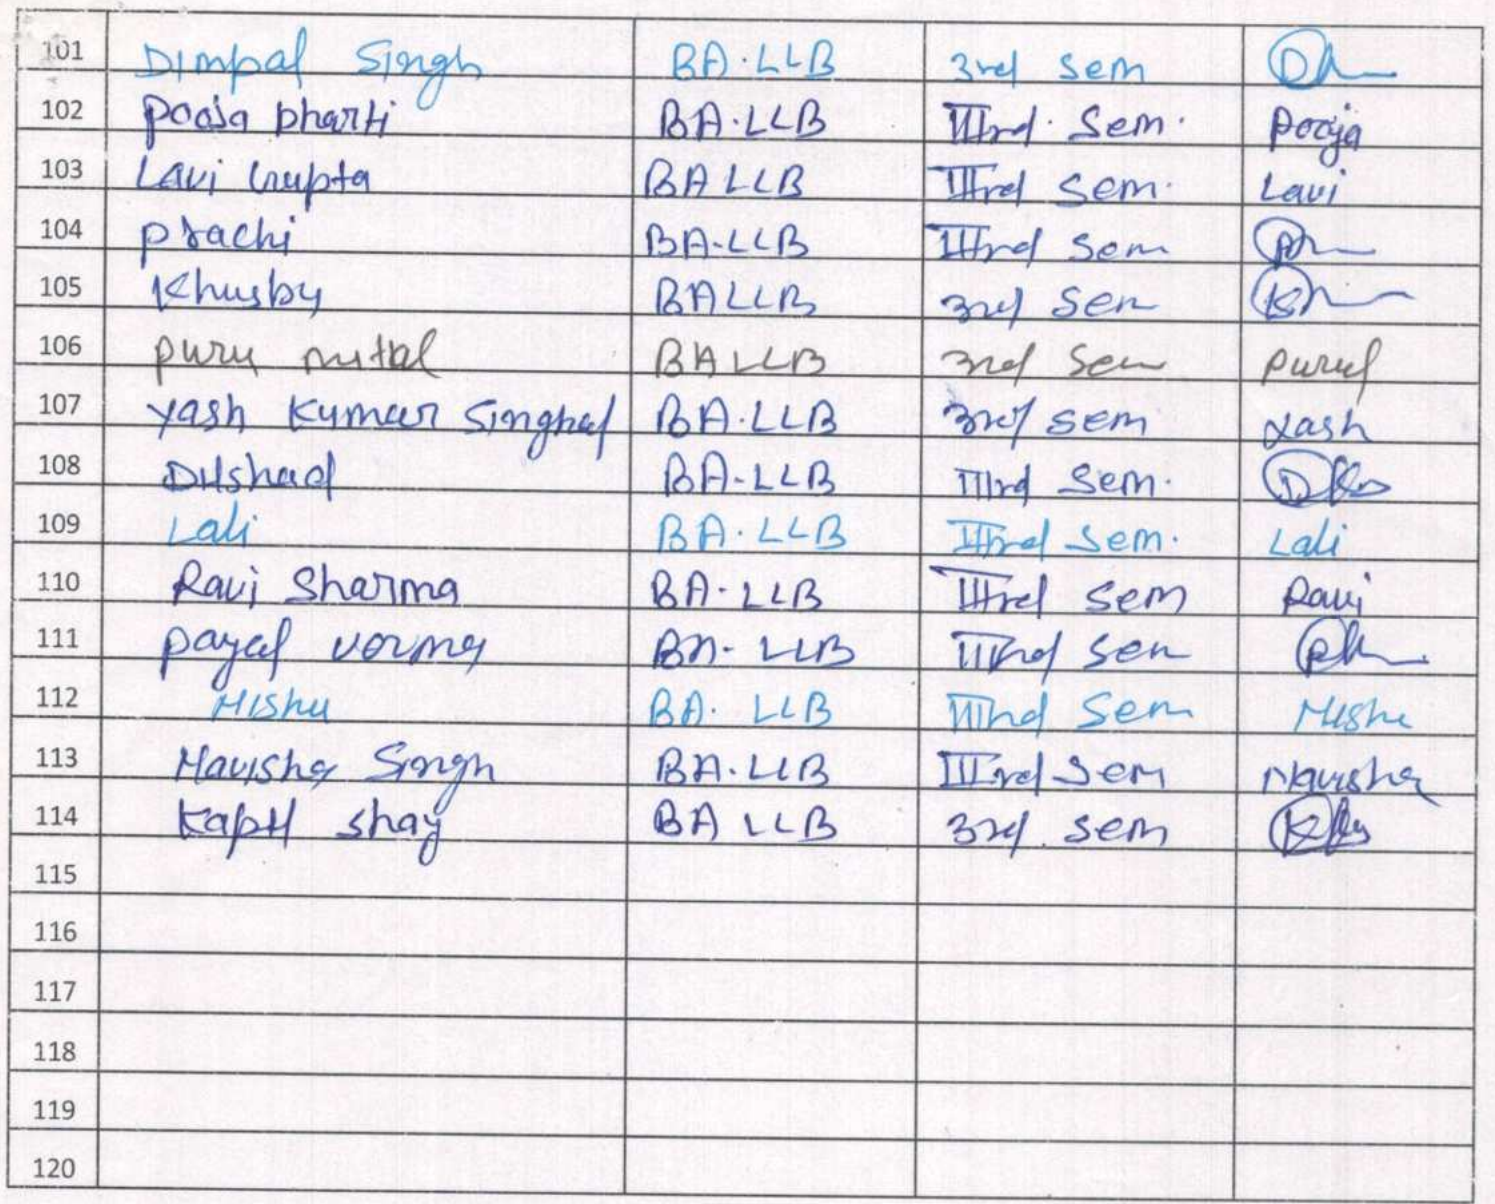 101 Dimpal Singh BA.LLB 3rd Sem
102 Pooja bharti BA.LLB IIIrd. Sem. Pooja
103 Lavi Gupta BALLB IIIrd Sem. Lavi
104 Prachi BA-LLB IIIrd Sem
105 Khusby BALLB 3rd Sem
106 Puru mittal BALLB 3rd Sem
107 Yash Kumar Singhal BA.LLB 3rd Sem Yash
108 Dilshad BA-LLB IIIrd Sem.
109 Lali BA.LLB IIIrd Sem. Lali
110 Ravi Sharma BA-LLB IIIrd Sem Ravi
111 Payal verma BA- LLB IIIrd Sem
112 BA. LLB IIIrd Sem
113 Singh BA.LLB IIIrd Sem
114 Kapil BA LLB 3rd. Sem
115
116
117
118
119
120